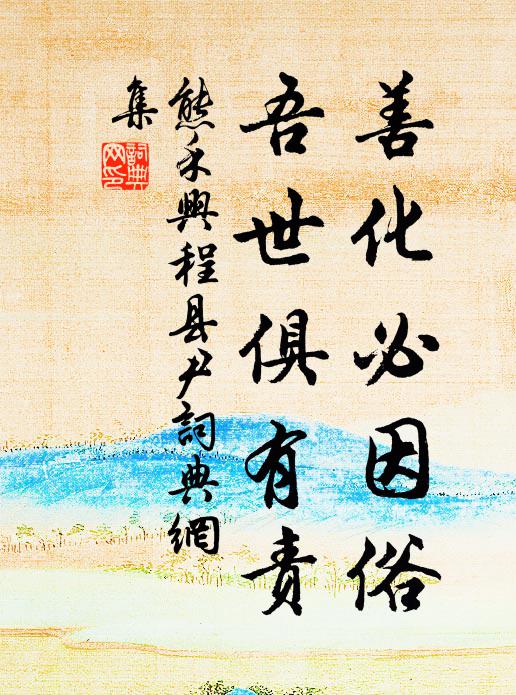 善化必因俗
吾世俱有责
熊禾興程县尹詞典網
集
詞典
网印